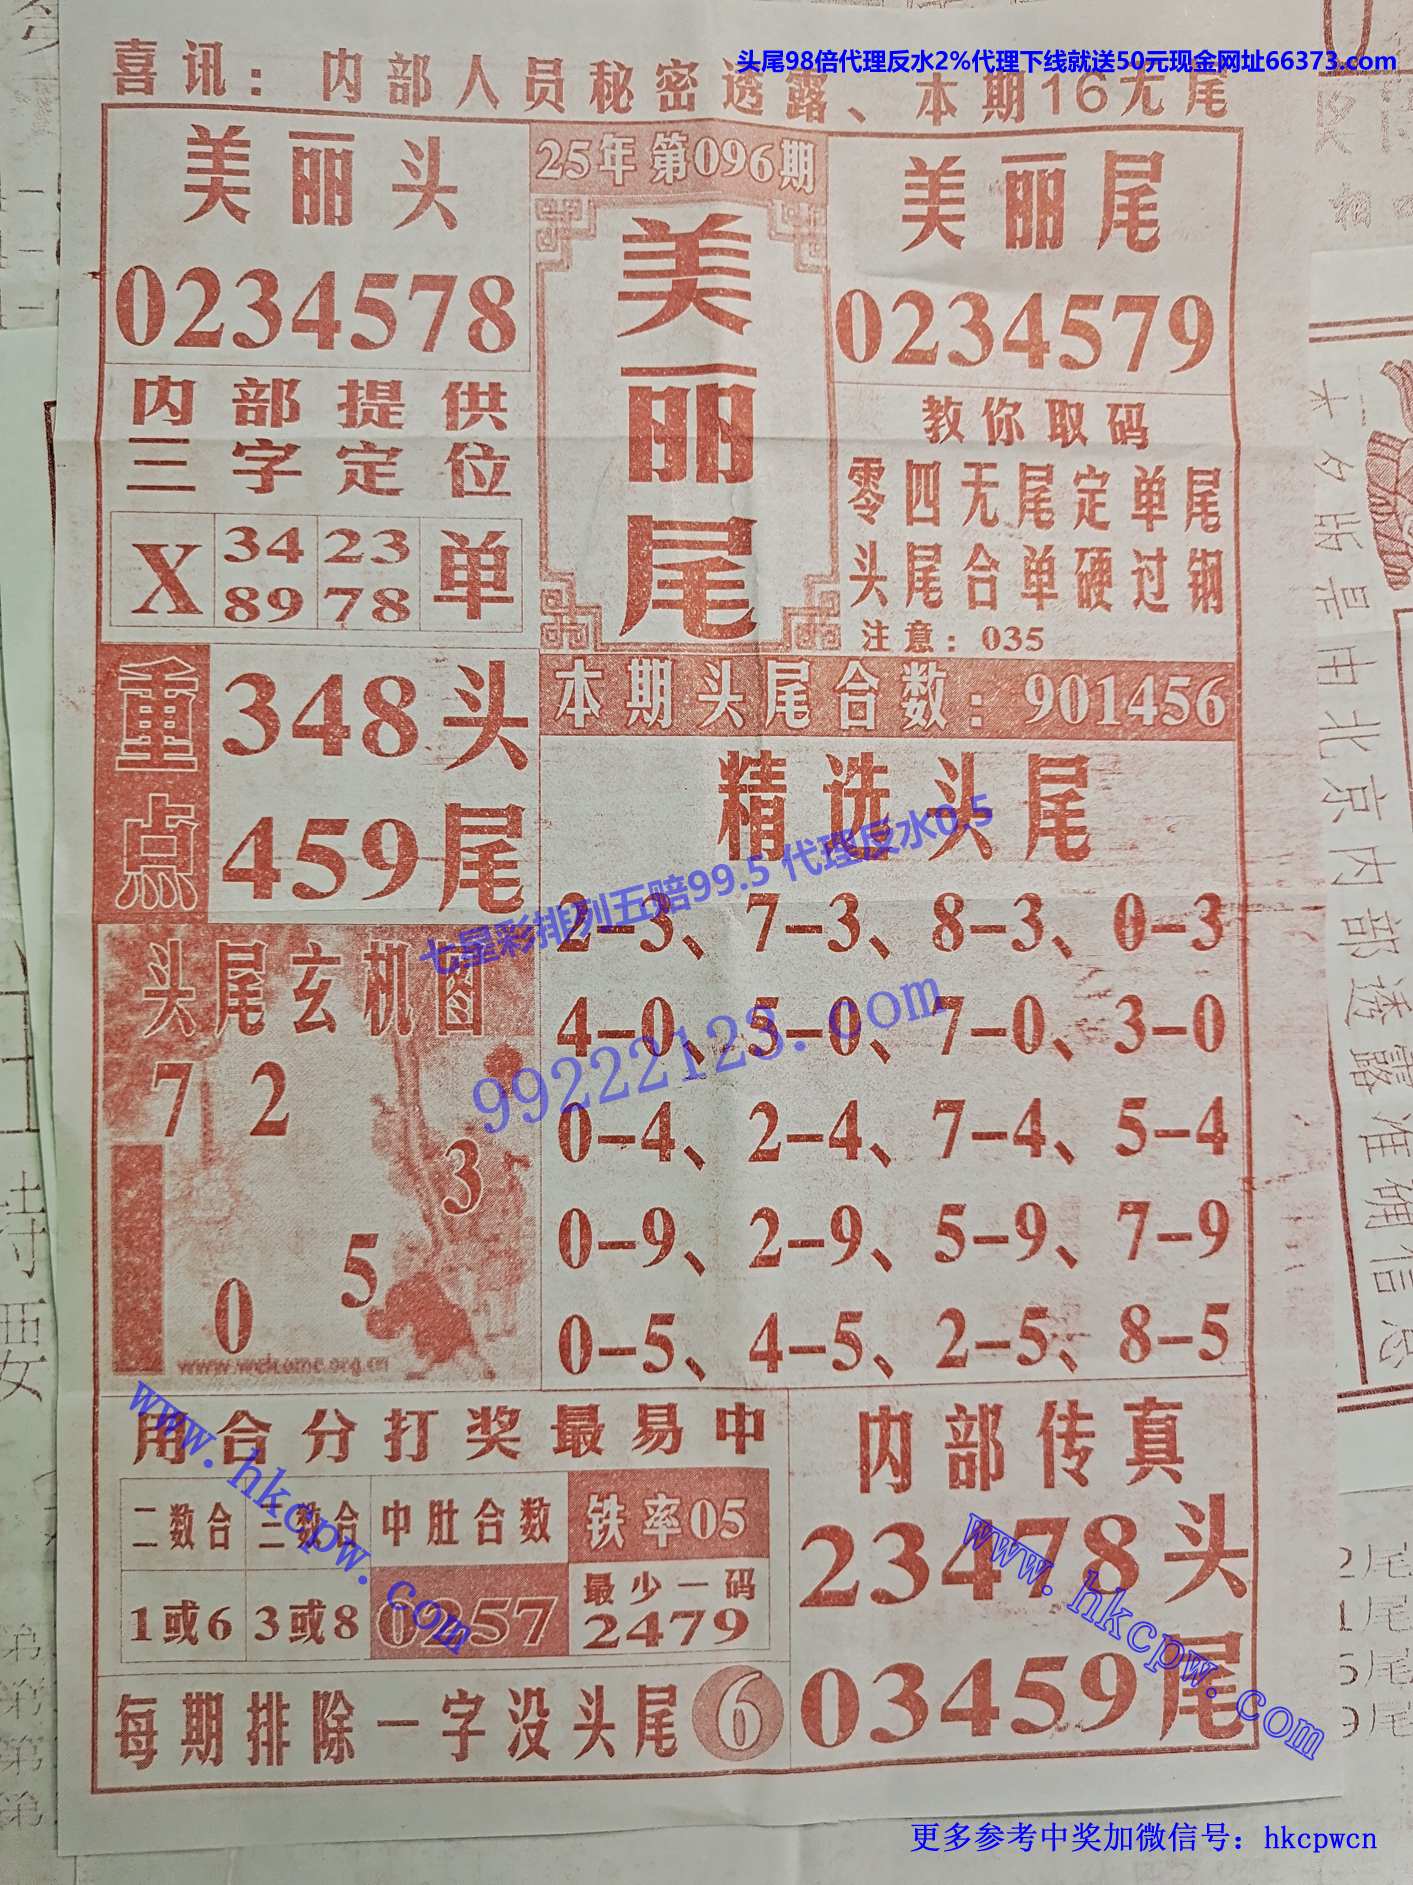 头尾98倍代理反水2%代理下线就送50元现金网址66373.com
喜讯：内部人员秘密透露、本期16无尾
美丽头
0234578
25年第096期
美丽尾
美丽尾
0234579
内部提供
三字定位
X 34 23 单
89 78
教你取码
零四无尾定单尾
头尾合单硬过钢
注意：035
重点
348头
459尾
本期头尾合数：901456
精选头尾
2-3、7-3、8-3、0-3
4-0、5-0、7-0、3-0
0-4、2-4、7-4、5-4
0-9、2-9、5-9、7-9
0-5、4-5、2-5、8-5
七星彩排列五赔99.5 代理反水0.5
99222123.com
头尾玄机图
7 2
3
5
0
www.welcome.org.cn
用合分打奖最易中
二数合 三数合 中肚合数 铁率05
1或6 3或8 0257 最少一码
2479
内部传真
23478头
03459尾
每期排除一字没头尾 6
www.hkcpw.com
www.hkcpw.com
更多参考中奖加微信号：hkcpwcn
木夕盼是由北京内部透露准确信息
2尾
1尾
5尾
9尾